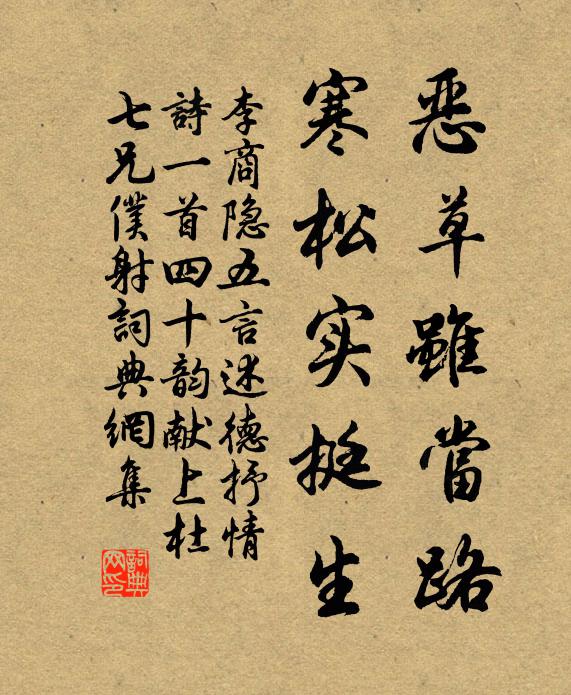 恶草雖當路
寒松实挺生
李商隐五言述德抒情
詩一首四十韵献上杜
七兄僕射詞典網集
詞典
网印